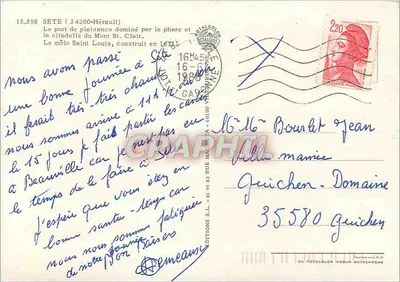 15.598 SETE (34200-Hérault)
Le port de plaisance dominé par le phare et
la citadelle du Mont St. Clair.
Le môle Saint Louis, construit en
nous avons passé
une bonne journée à Sète
il ferait très très chaud
nous sommes arrivé à 11h ½ du soir
le 15 Jour je fait partir les cartes
a Beauville car je n'est pas eu
le temps de le faire à Sète
J'espère que vous êtes en
bonne santé
nous nous sommes fatigués
de notre journée
Bon Baisers
16H45
16-6
GARE
2,20
M. M. Bourlet Jean
Villa mamie
Guichen-Domaine
35580 Guichen
EDITIONS S.L.
GRAPHIC